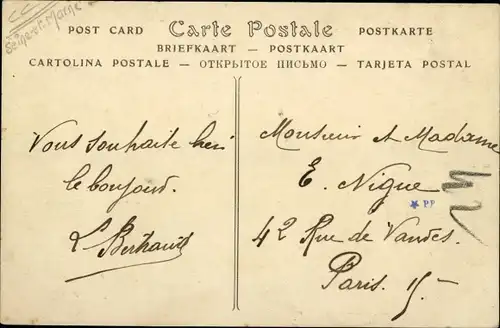 Seine-et-Marne
POST CARD Carte Postale POSTKARTE
BRIEFKAART — POSTKAART
CARTOLINA POSTALE — ОТКРЫТОЕ ПИСЬМО — TARJETA POSTAL
Vous souhaite
le bonjour.
L Berthault
Monsieur et Madame
E. Nigue
PP
42 Rue de Vanves.
Paris. 15-